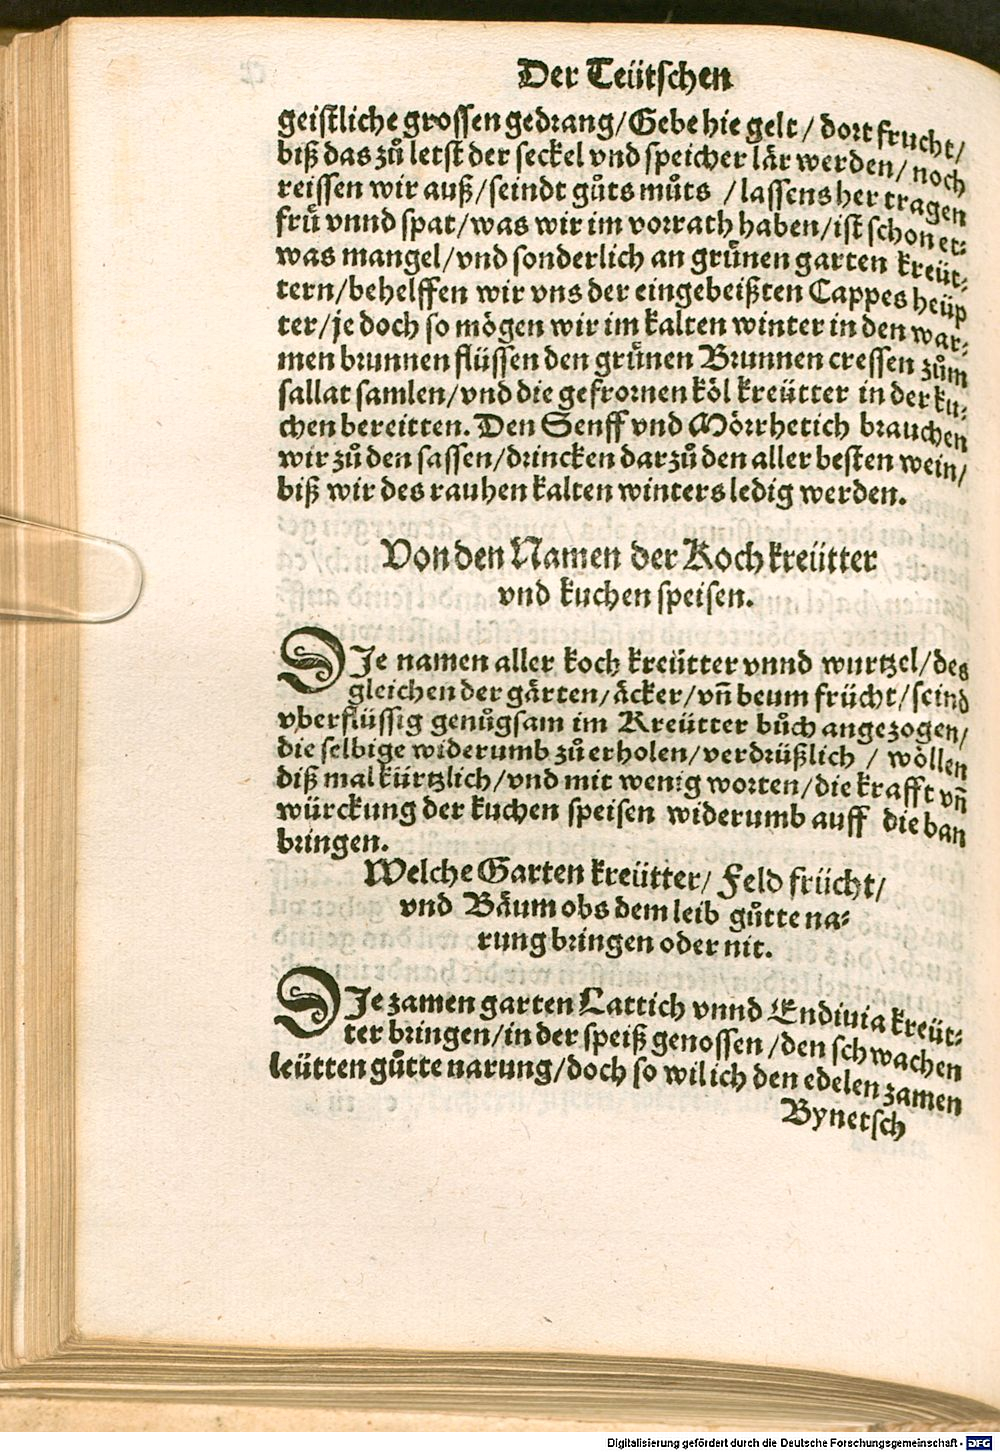 Der Teütschen
geistliche grossen gedrang/Gebe hie gelt/ dort frucht/
biß das zů letst der seckel vnd speicher lär werden/ noch
reissen wir auß/seindt gůts můts /lassens her tragen
frü vnnd spat/was wir im vorrath haben/ist schon et⸗
was mangel/vnd sonderlich an grünen garten kreüt⸗
tern/behelffen wir vns der eingebeißten Cappes heüp
ter/je doch so mögen wir im kalten winter in den war⸗
men brunnen flüssen den grünen Brunnen cressen zům
sallat samlen/vnd die gefrornen köl kreütter in der ku⸗
chen bereitten. Den Senff vnd Mörrhetich brauchen
wir zů den sassen/drincken darzů den aller besten wein/
biß wir des rauhen kalten winters ledig werden.
Von den Namen der Koch kreütter
vnd kuchen speisen.
DIe namen aller koch kreütter vnnd wurtzel/des
gleichen der gärten/äcker/vñ beum frücht/seind
vberflüssig genůgsam im Kreütter bůch angezogen/
die selbige widerumb zů erholen/verdrüßlich / wöllen
diß mal kürtzlich/vnd mit wenig worten/die krafft vñ
würckung der kuchen speisen widerumb auff die ban
bringen.
Welche Garten kreütter/ Feld frücht/
vnd Bäum obs dem leib gůtte na⸗
rung bringen oder nit.
DIe zamen garten Lattich vnnd Endiuia kreüt⸗
ter bringen/in der speiß genossen /den schwachen
leütten gůtte narung/doch so wil ich den edelen zamen
Bynetsch
Digitalisierung gefördert durch die Deutsche Forschungsgemeinschaft - DFG